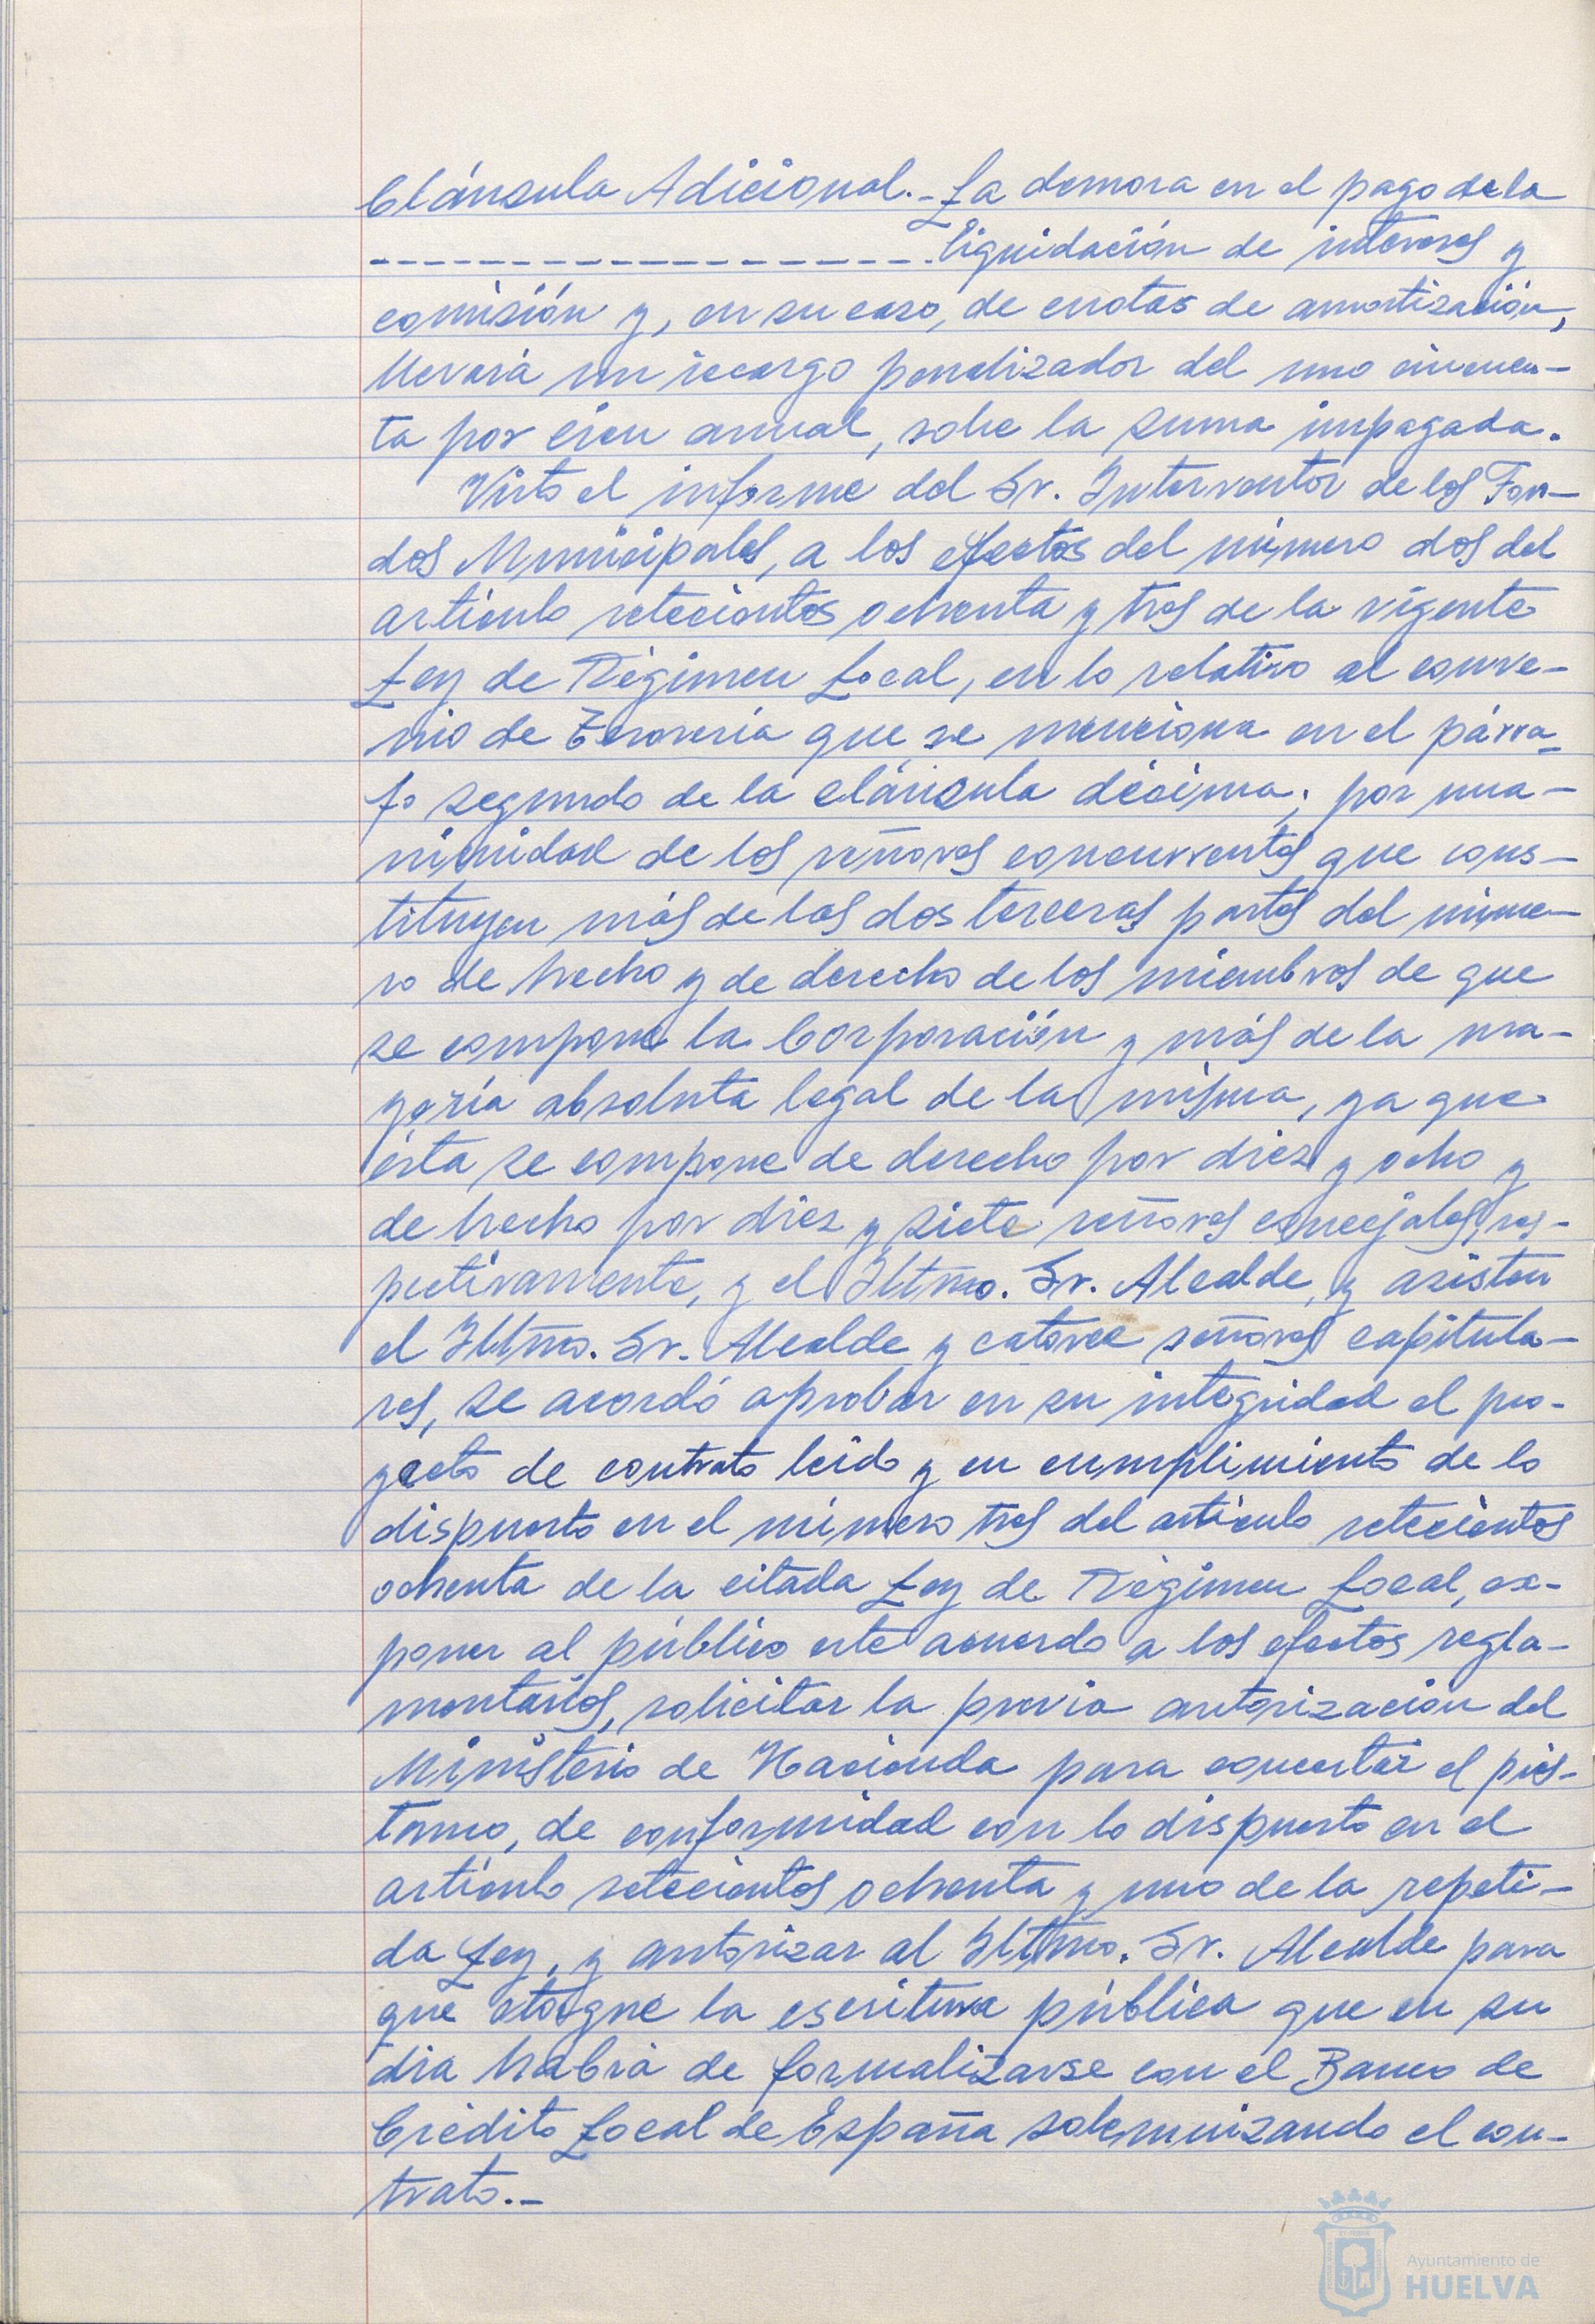 Cláusula Adicional.- La demora en el pago de la
------------------- liquidación de intereses y
comisión y, en su caso, de cuotas de amortización,
llevará un recargo penalizador del uno cincuen-
ta por cien anual, sobre la suma impagada.
Visto el informe del Sr. Interventor de los Fon-
dos Municipales, a los efectos del número dos del
artículo setecientos ochenta y tres de la vigente
Ley de Régimen Local, en lo relativo al conve-
nio de Tesorería que se menciona en el párra-
fo segundo de la cláusula décima; por una-
nimidad de los señores concurrentes que cons-
tituyen más de las dos terceras partes del núme-
ro de hecho y de derecho de los miembros de que
se compone la Corporación y más de la ma-
yoría absoluta legal de la misma, ya que
ésta se compone de derecho por diez y ocho y
de hecho por diez y siete señores concejales, res-
pectivamente, y el Iltmo. Sr. Alcalde, y asisten
el Iltmo. Sr. Alcalde y catorce señores capitula-
res, se acordó aprobar en su integridad el pro-
yecto de contrato leído y en cumplimiento de lo
dispuesto en el número tres del artículo setecientos
ochenta de la citada Ley de Régimen Local, ex-
poner al público este acuerdo a los efectos regla-
mentarios, solicitar la previa autorización del
Ministerio de Hacienda para concertar el prés-
tamo, de conformidad con lo dispuesto en el
artículo setecientos ochenta y uno de la repeti-
da Ley, y autorizar al Iltmo. Sr. Alcalde para
que otorgue la escritura pública que en su
día habrá de formalizarse con el Banco de
Crédito Local de España solemnizando el con-
trato.-
Ayuntamiento de
HUELVA